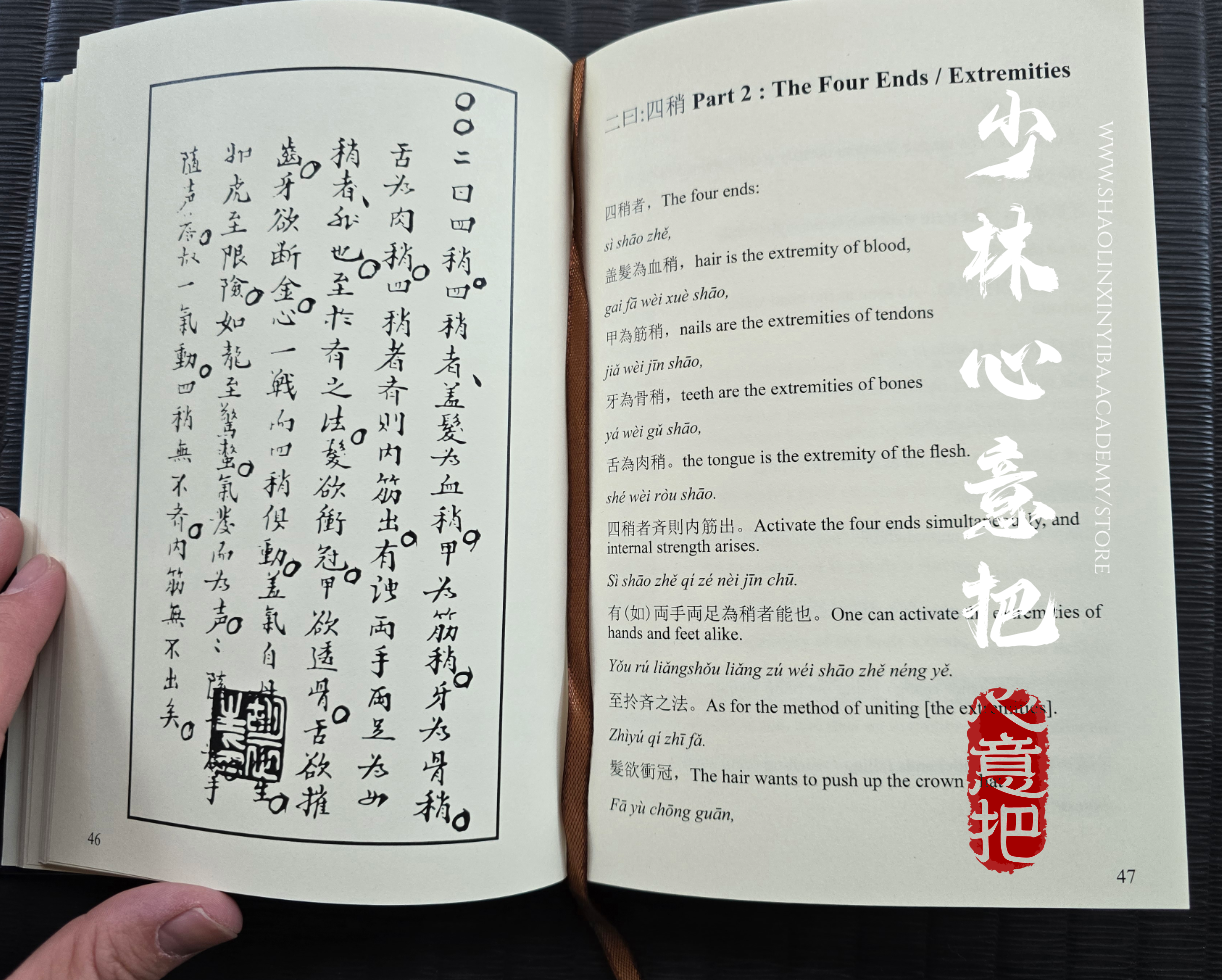 〇〇二曰四稍。四稍者、盖髮为血稍。甲为筋稍。牙为骨稍。
舌为肉稍。四稍者斉则内筋出。有両手両足为如
稍者、能也。至於斉之法。髮欲衝冠。甲欲透骨。舌欲摧
齒。牙欲断金。心一戦而四稍俱動。盖氣自生。
如虎至限險。如龍至驚蟄。氣發而为声。〻隨手
隨声一氣動。四稍無不斉。内筋無不出矣。
46
二曰:四稍 Part 2 : The Four Ends / Extremities
四稍者，The four ends:
sì shāo zhě,
盖髮為血稍，hair is the extremity of blood,
gai fā wèi xuè shāo,
甲為筋稍，nails are the extremities of tendons
jiǎ wèi jīn shāo,
牙為骨稍，teeth are the extremities of bones
yá wèi gǔ shāo,
舌為肉稍。the tongue is the extremity of the flesh.
shé wèi ròu shāo.
四稍者斉則内筋出。Activate the four ends simultaneously, and
internal strength arises.
Sì shāo zhě qí zé nèi jīn chū.
有(如)両手両足為稍者能也。One can activate the extremities of
hands and feet alike.
Yǒu rú liǎngshǒu liǎng zú wéi shāo zhě néng yě.
至扵斉之法。As for the method of uniting [the extremities].
Zhìyú qí zhī fǎ.
髮欲衝冠，The hair wants to push up the crown
Fā yù chōng guān,
47
少林心意把
WWW.SHAOLINXINYIBA.ACADEMY/STORE
心意把